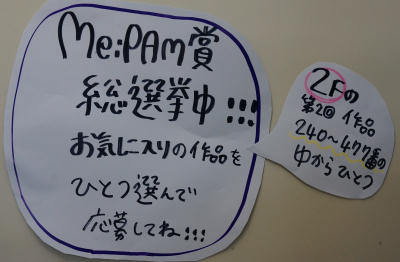 Me:PAM賞
総選挙中!!!
お気に入りの作品を
ひとつ選んで
応募してね!!!
2Fの
第2回 作品
240~477番の
中からひとつ